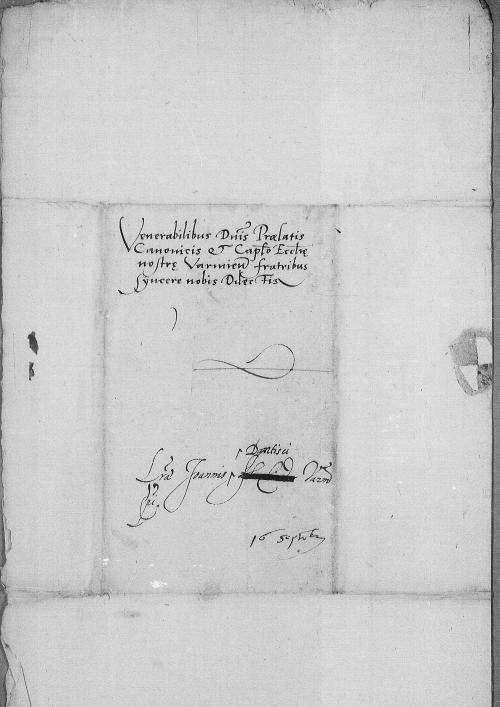 Venerabilibus Dnis Prælatis
Canonicis et Caplo Eccle
nostrę Varmien fratribus
syncere nobis Dilectis
Dantisci
Lræ Joannis Varm
16 Septebr